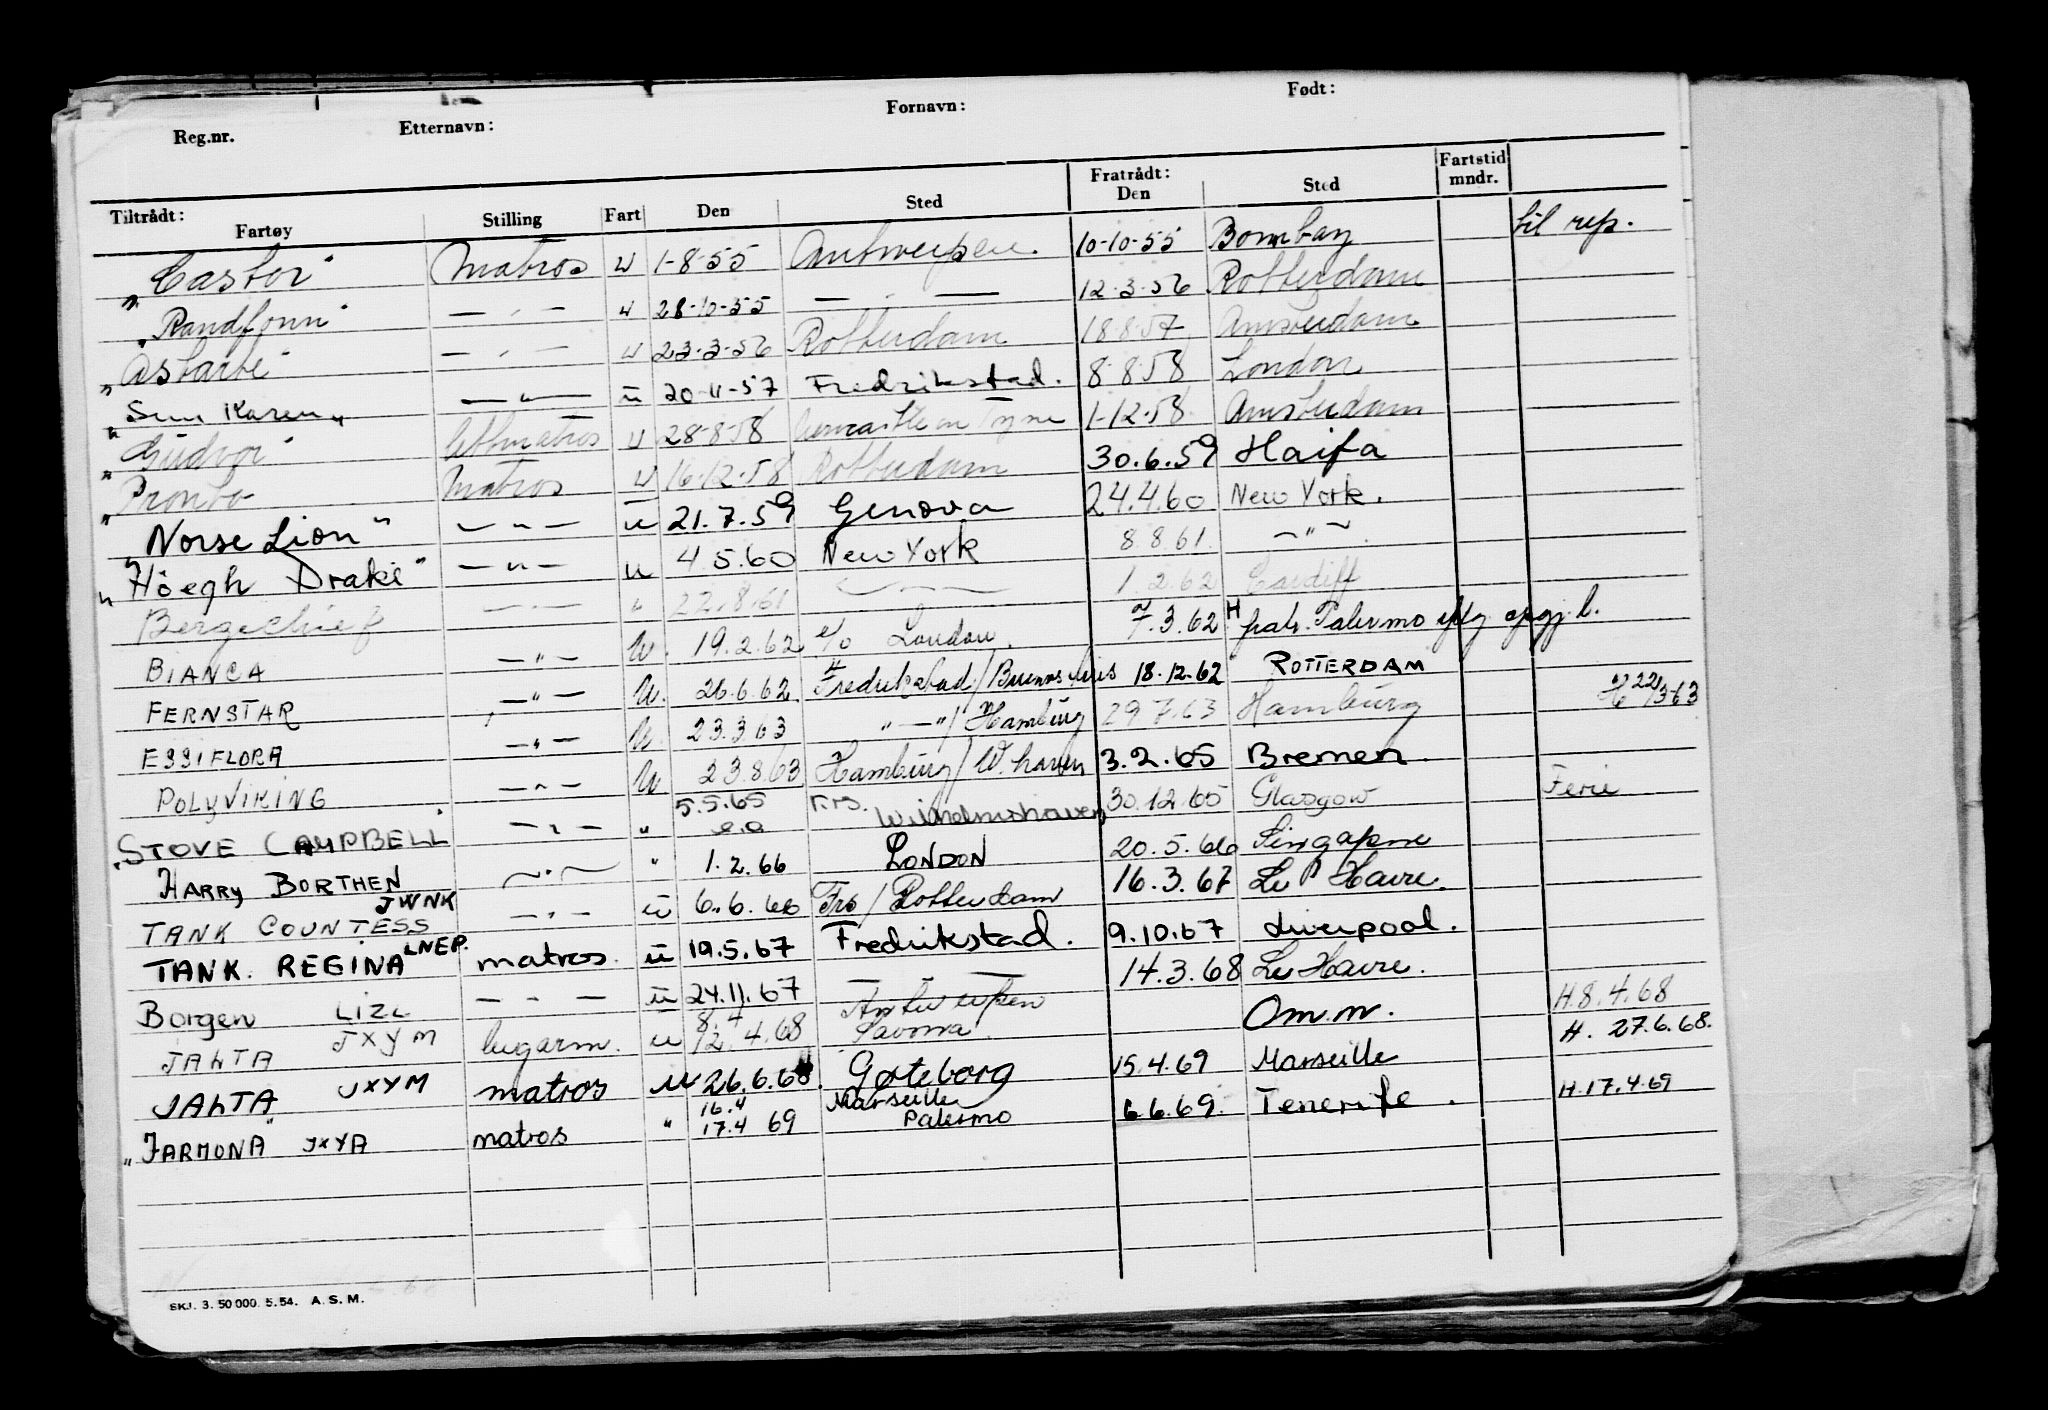 Reg.nr. Etternavn: Fornavn: Født:
Tiltrådt: Fratrådt: Fartstid
Fartøy Stilling Fart Den Sted Den Sted mndr.
"Castor" Matros u 1-8-55 Antwerpen. 10-10-55 Bombay til rep.
"Randfonn" — " — u 28-10-55 — " — 12-3-56 Rotterdam
"Astarte" — " — u 23-3-56 Rotterdam 18-8-57 Amsterdam
"Sun Karen" — " — u 20-11-57 Fredrikstad. 8-8-58 London
"Gudvor" lettmatros u 28-8-58 Newcastle on Tyne 1-12-58 Amsterdam
"Pronto Matros u 16-12-58 Rotterdam 30.6.59 Haifa
"Norse Lion" — " — u 21.7.59 Genova 24.4.60 New York.
"Höegh Drake" — " — u 4.5.60 New York 8.8.61. — " —
Bergechief — " — " 22.8.61 — " — 1.2.62 Cardiff
BIANCA — " — U. 19.2.62 e/o London. 7.3.62 H fratr. Palermo oppgj. l.
FERNSTAR — " — U. 26.6.62 Fredrikstad/Buenos Aires 18.12.62 ROTTERDAM
ESSIFLORA — " — U. 23.3.63 " — "/Hamburg 29.7.63 Hamburg H 22/3-63
POLYVIKING — " — U 23.8.63 Hamburg/W.haven 3.2.65 Bremen
"STOVE CAMPBELL" — " — " 5.5.65 e.o Frs. Wilhelmshaven 30.12.65 Glasgow Ferie
HARRY BORTHEN — " — " 1.2.66 LONDON 20.5.66 Singapore
TANK COUNTESS JWNK — " — u 6.6.66 Frs/Rotterdam 16.3.67 Le Havre.
TANK. REGINA LNEP. matros. u 19.5.67 Fredrikstad. 9.10.67 Liverpool.
Borgen LIZL — " — u 24.11.67 — 14.3.68 Le Havre.
JALTA JXYM lugarm. u 8.4 12.4.68 Antwerpen Savona Om.m. H.8.4.68
JALTA JXYM matros u 26.6.68. Gøteborg 15.4.69 Marseille H. 27.6.68.
"JARMONA" JXYA matros " 16.4 17.4 69 Marseille Palermo 6.6.69. Tenerife. H.17.4.69
SKJ. 3. 50 000. 5. 54. A. S. M.